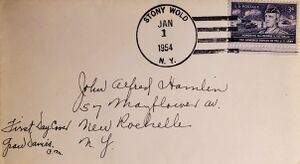 STONY WOLD
JAN
1
1954
N.Y.
U.S. POSTAGE 3¢
John Alfred Hamlin
57 Mayflower av.
New Rochelle
N.Y.
First Day Cover
Grace Davies
P.M.